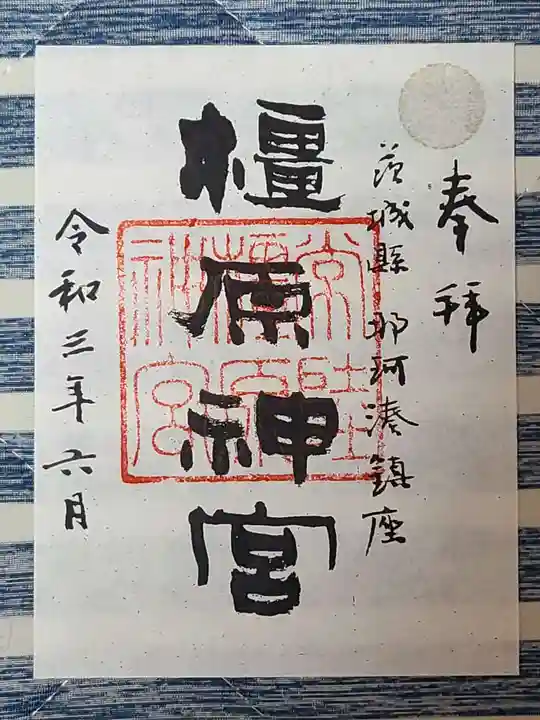 奉拝
茨城縣 那珂湊鎮座
橿原神宮
常陸
橿原
神宮
令和三年六月